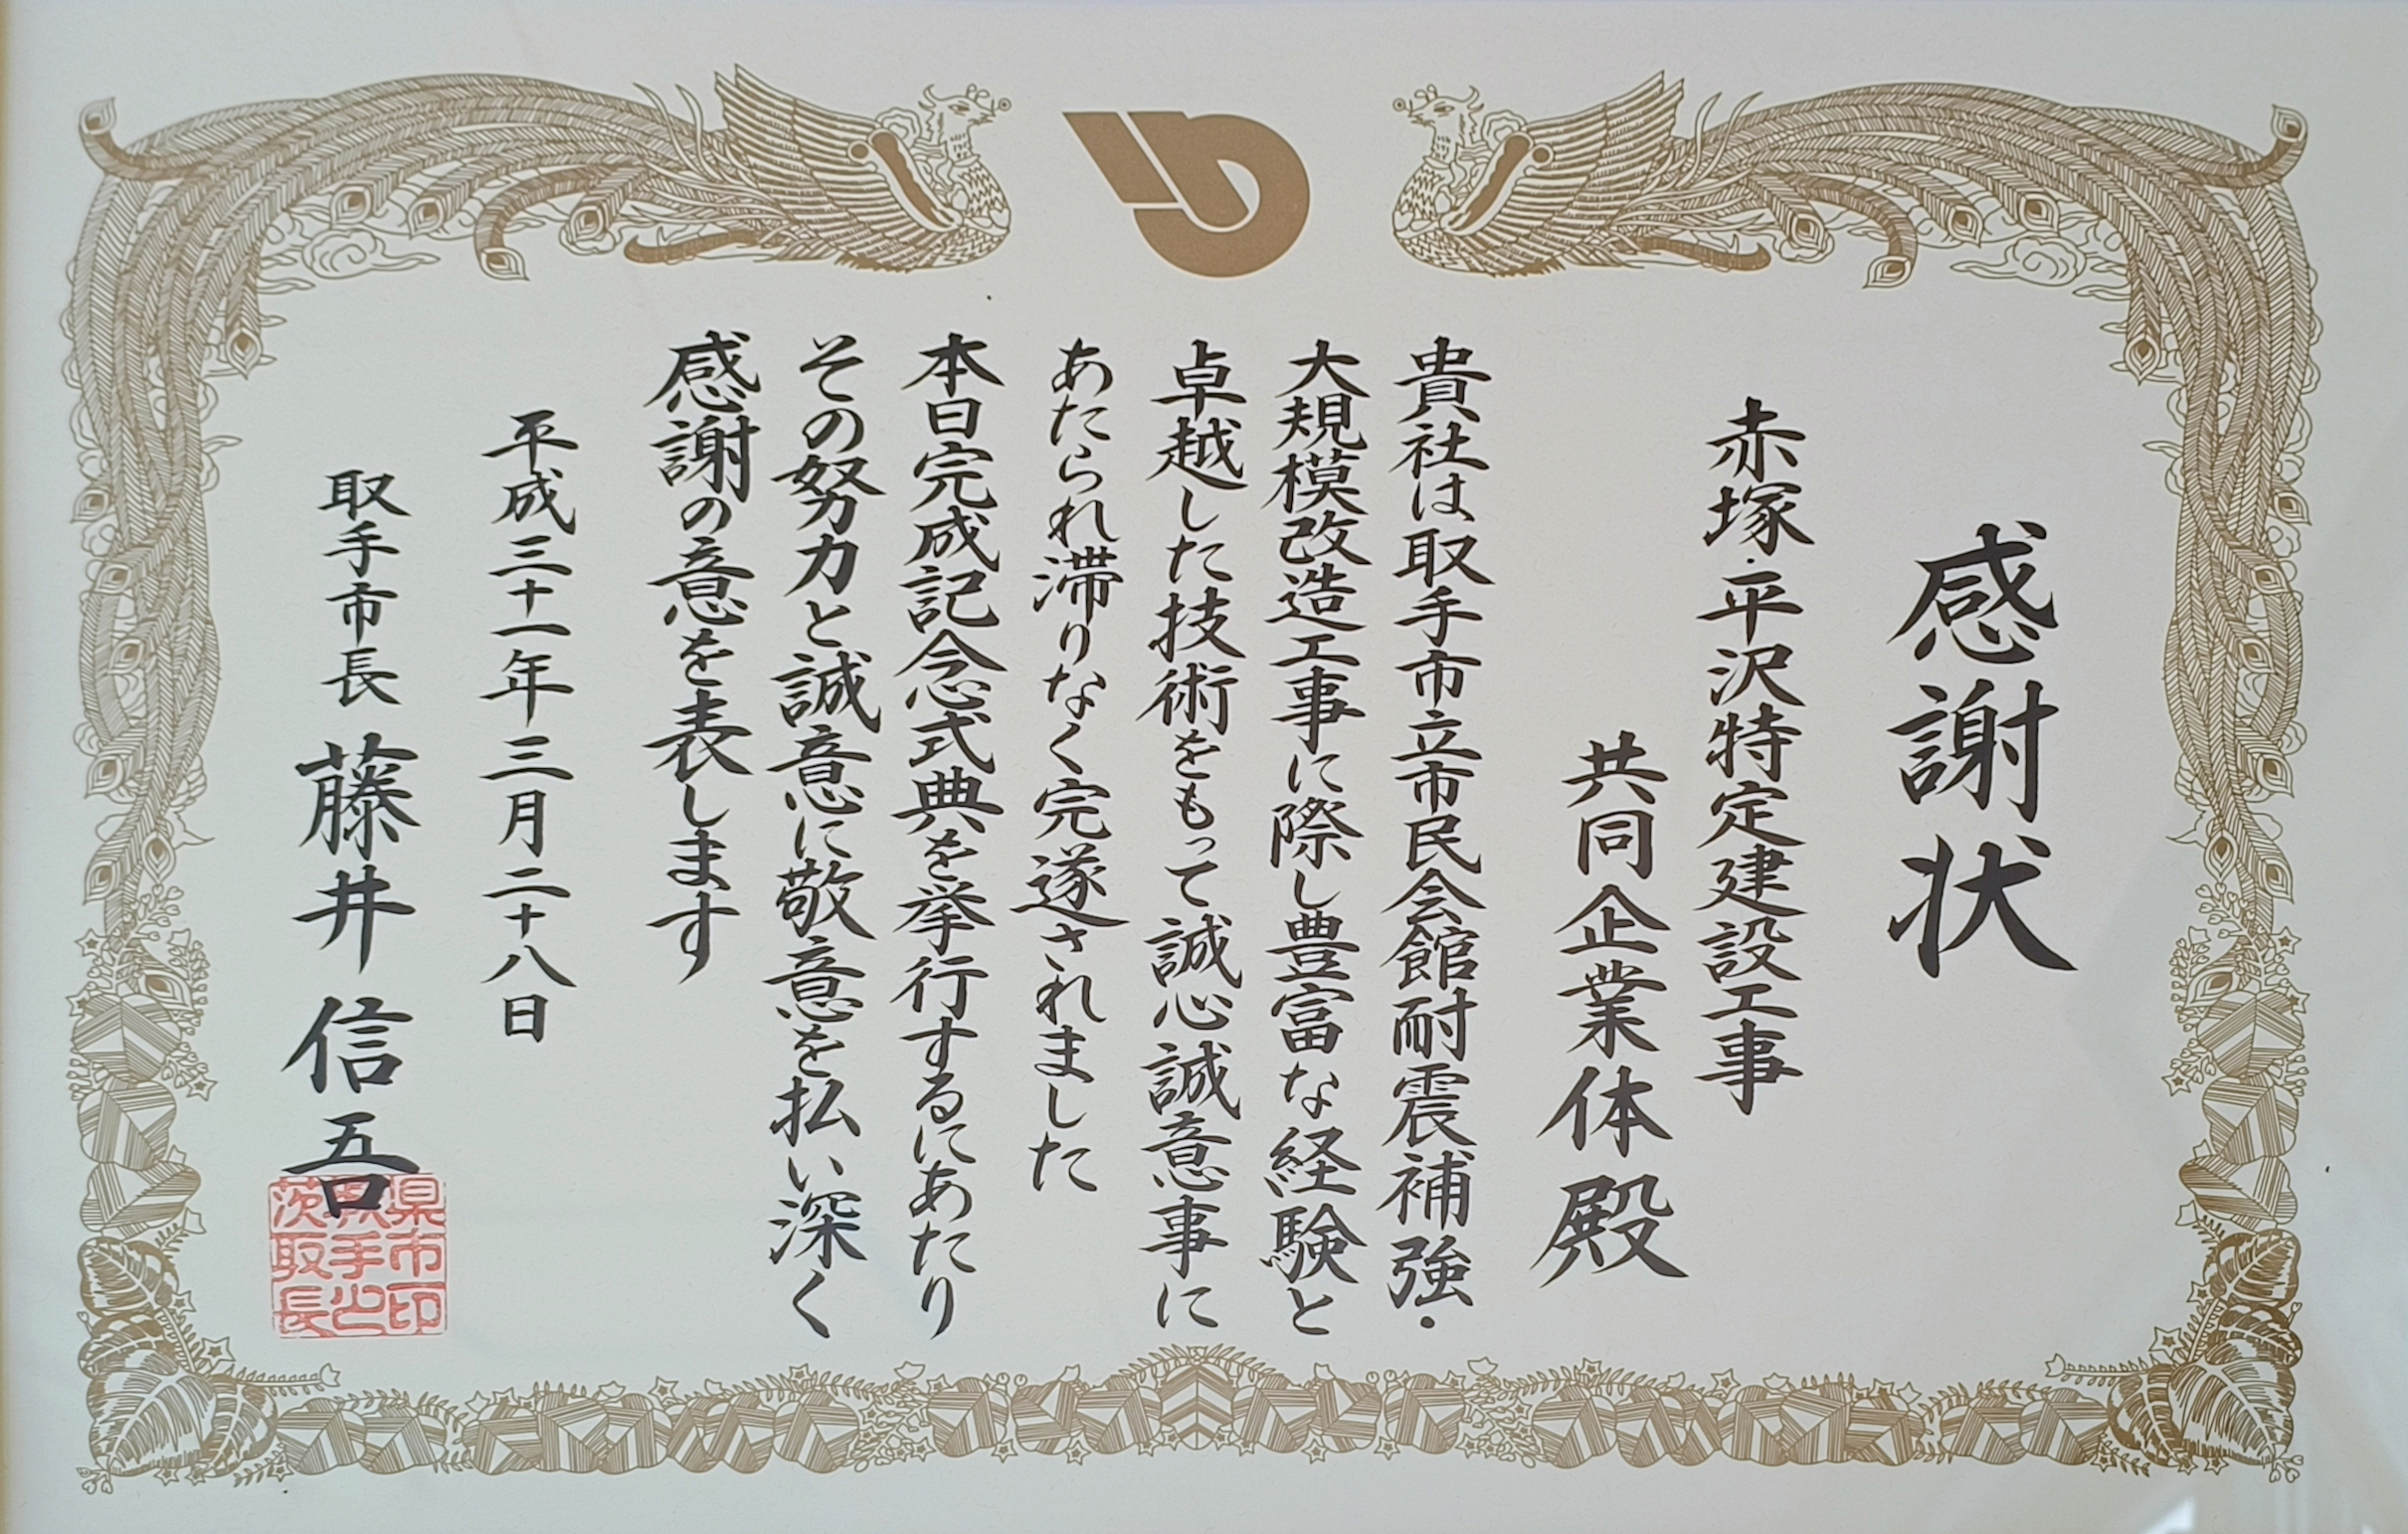 感謝状
赤塚・平沢特定建設工事
共同企業体殿
貴社は取手市立市民会館耐震補強・
大規模改造工事に際し豊富な経験と
卓越した技術をもって誠心誠意事に
あたられ滞りなく完遂されました
本日完成記念式典を挙行するにあたり
その努力と誠意に敬意を払い深く
感謝の意を表します
平成三十一年三月二十八日
取手市長 藤井信吾
県市印
手之
茨取長